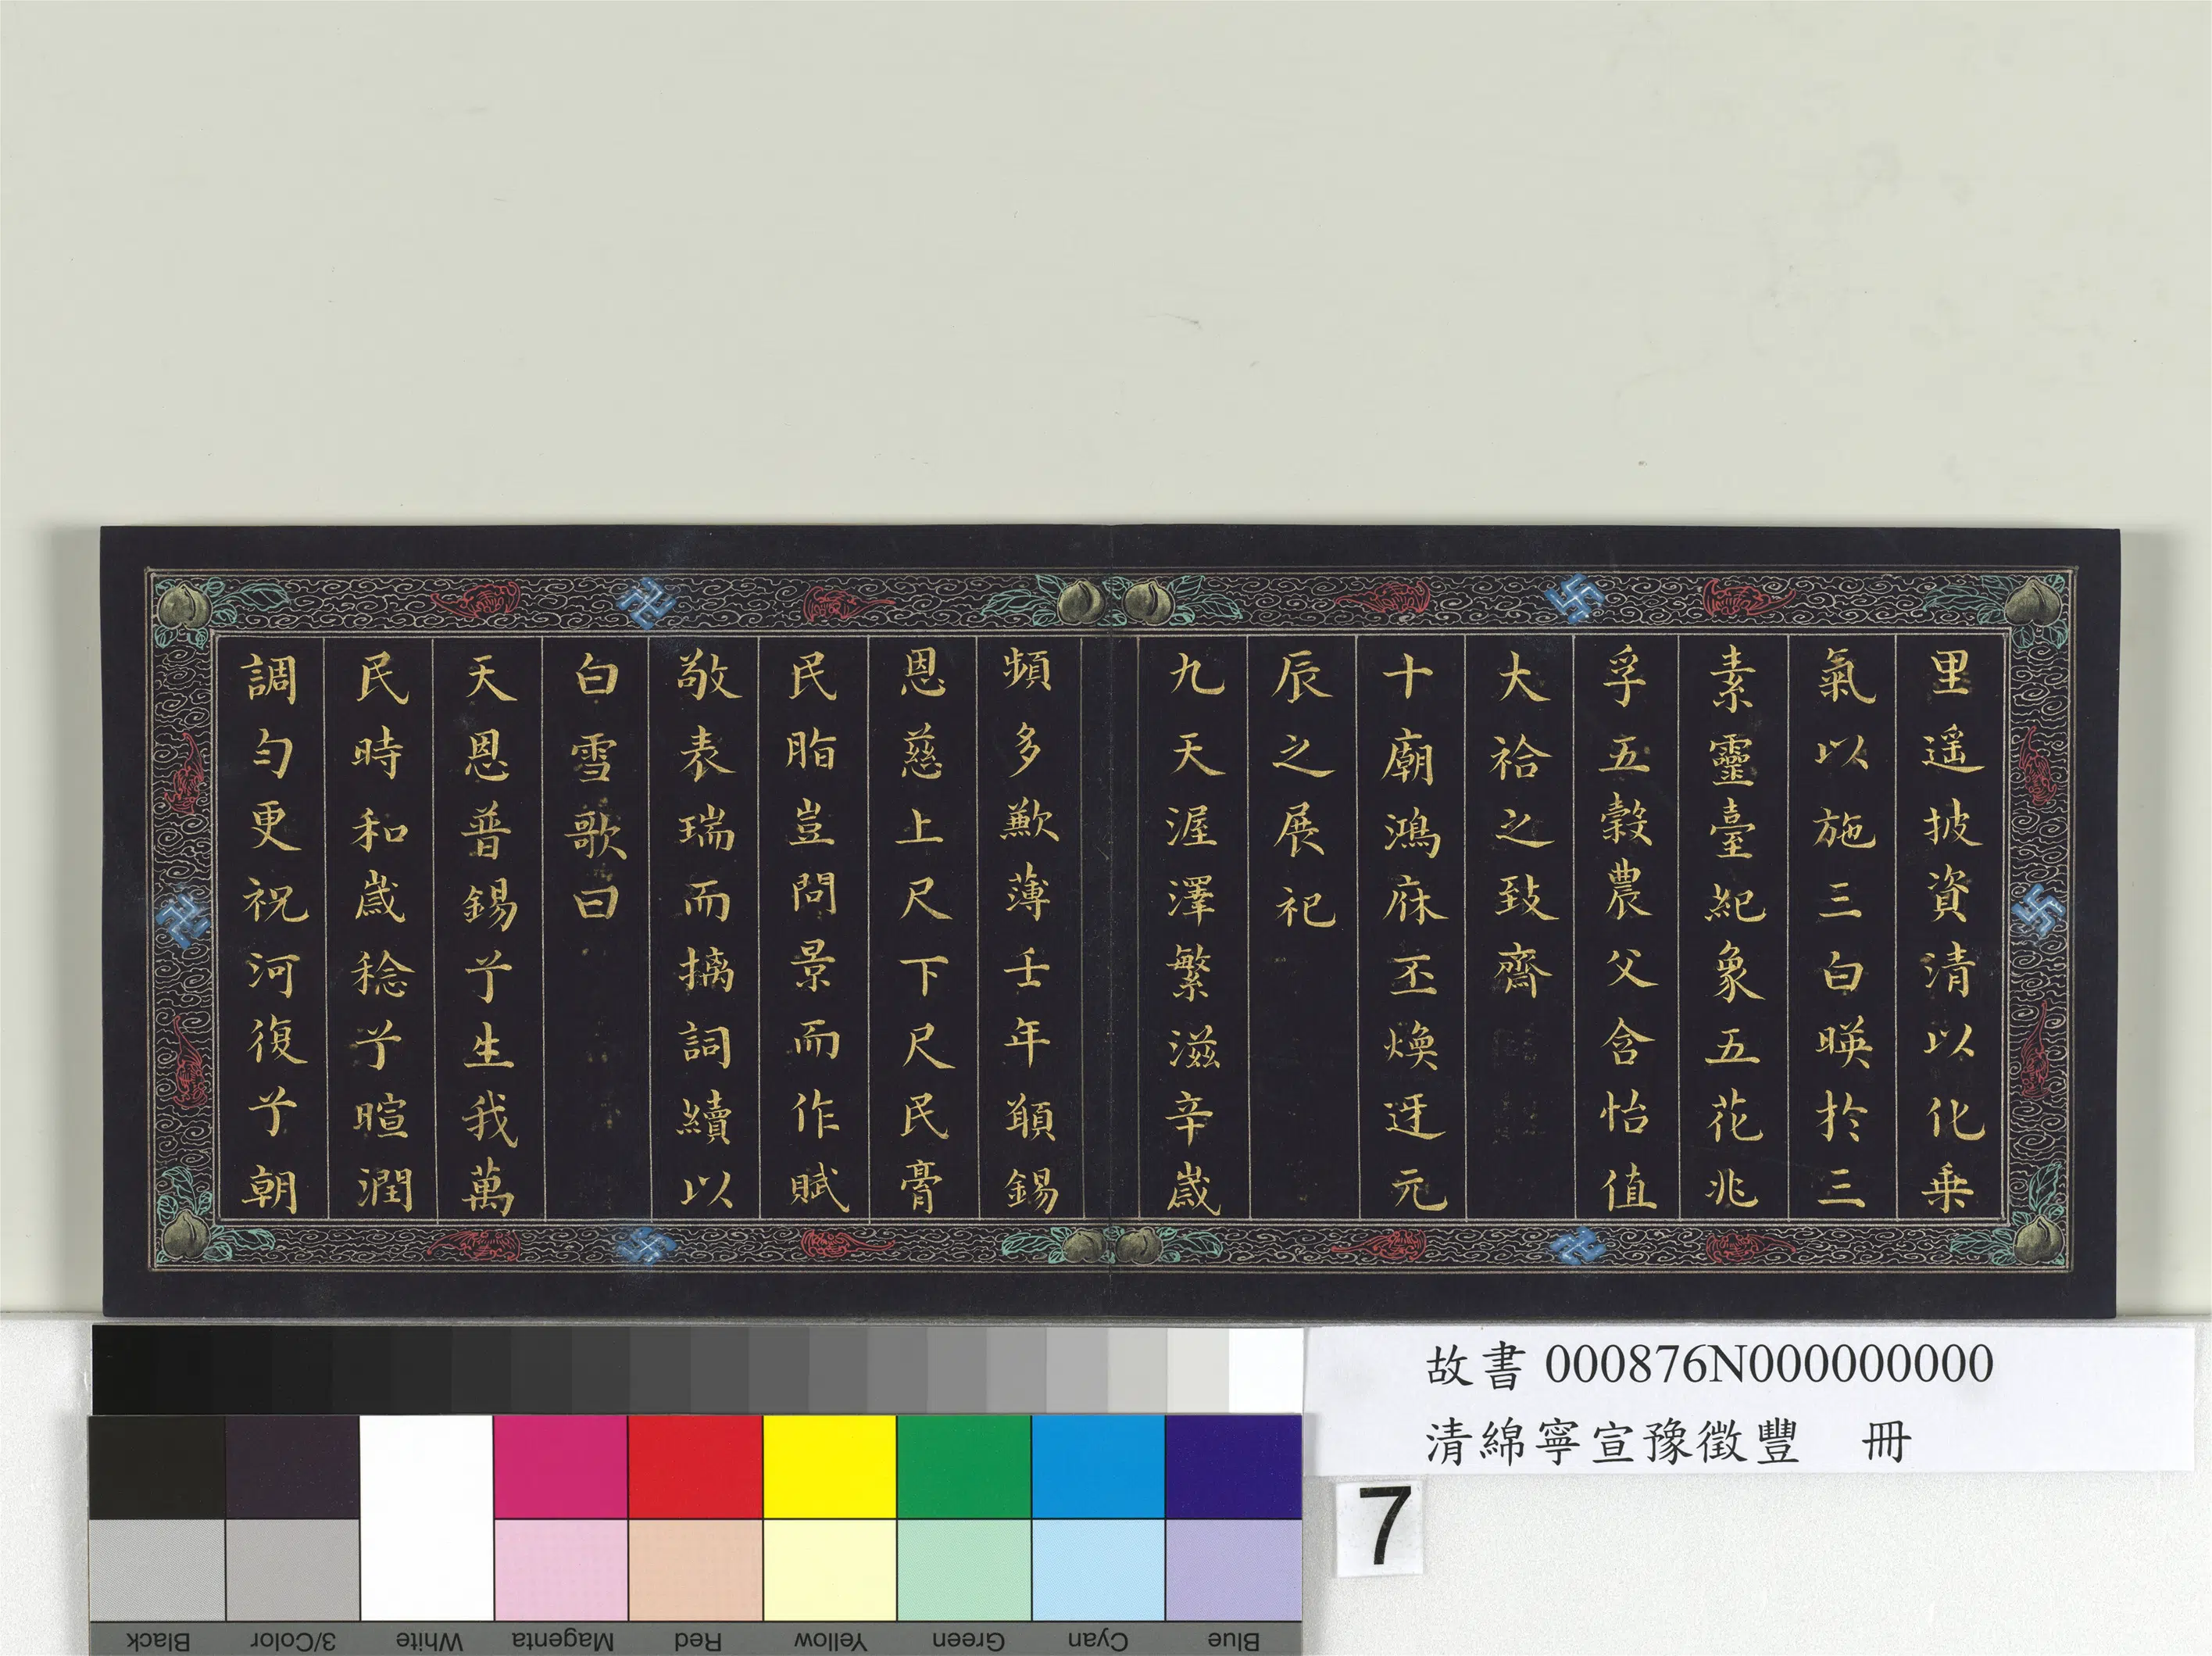 里遥披資清以化乗
氣以施三白暎扵三
素靈臺紀象五花兆
孚五穀農父含怡值
大祫之致齋
十廟鴻庥丕煥迓元
辰之展祀
九天渥澤繁滋辛歳
頻多歉薄壬年頓錫
恩慈上尺下尺民膏
民脂豈問景而作賦
敬表瑞而摛詞續以
白雪歌曰
天恩普錫兮生我萬
民時和歳稔兮暄潤
調勻更祝河復兮朝
故書 000876N000000000
清綿寧宣豫徵豐　冊
7
Black 3/Color White Magenta Red Yellow Green Cyan Blue